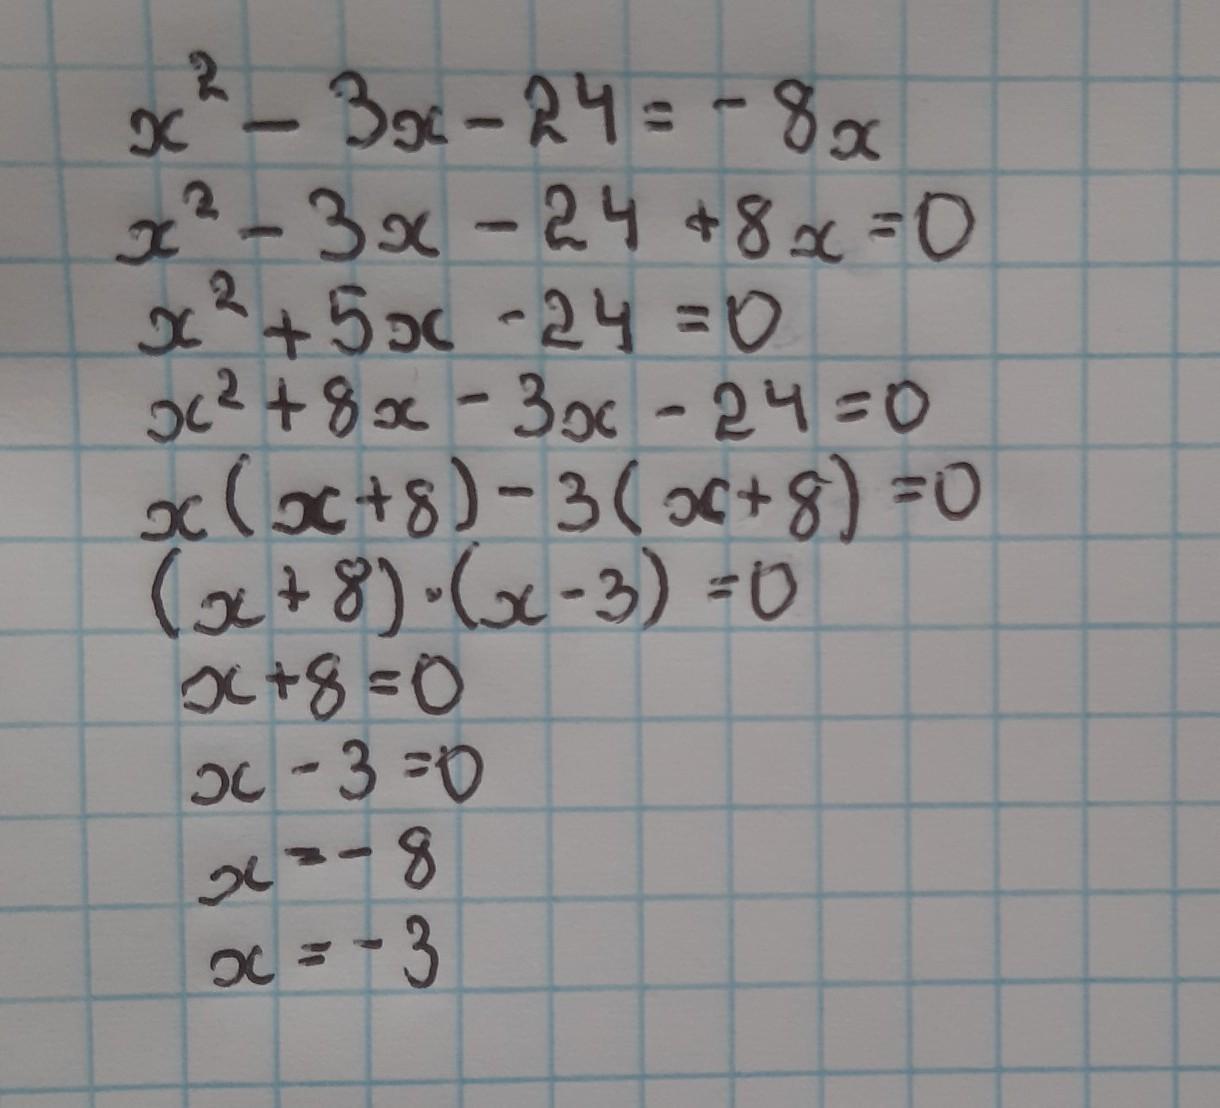 x² - 3x - 24 = - 8x
x² - 3x - 24 + 8x = 0
x² + 5x - 24 = 0
x² + 8x - 3x - 24 = 0
x(x+8) - 3(x+8) = 0
(x+8)·(x-3) = 0
x+8 = 0
x - 3 = 0
x = - 8
x = - 3